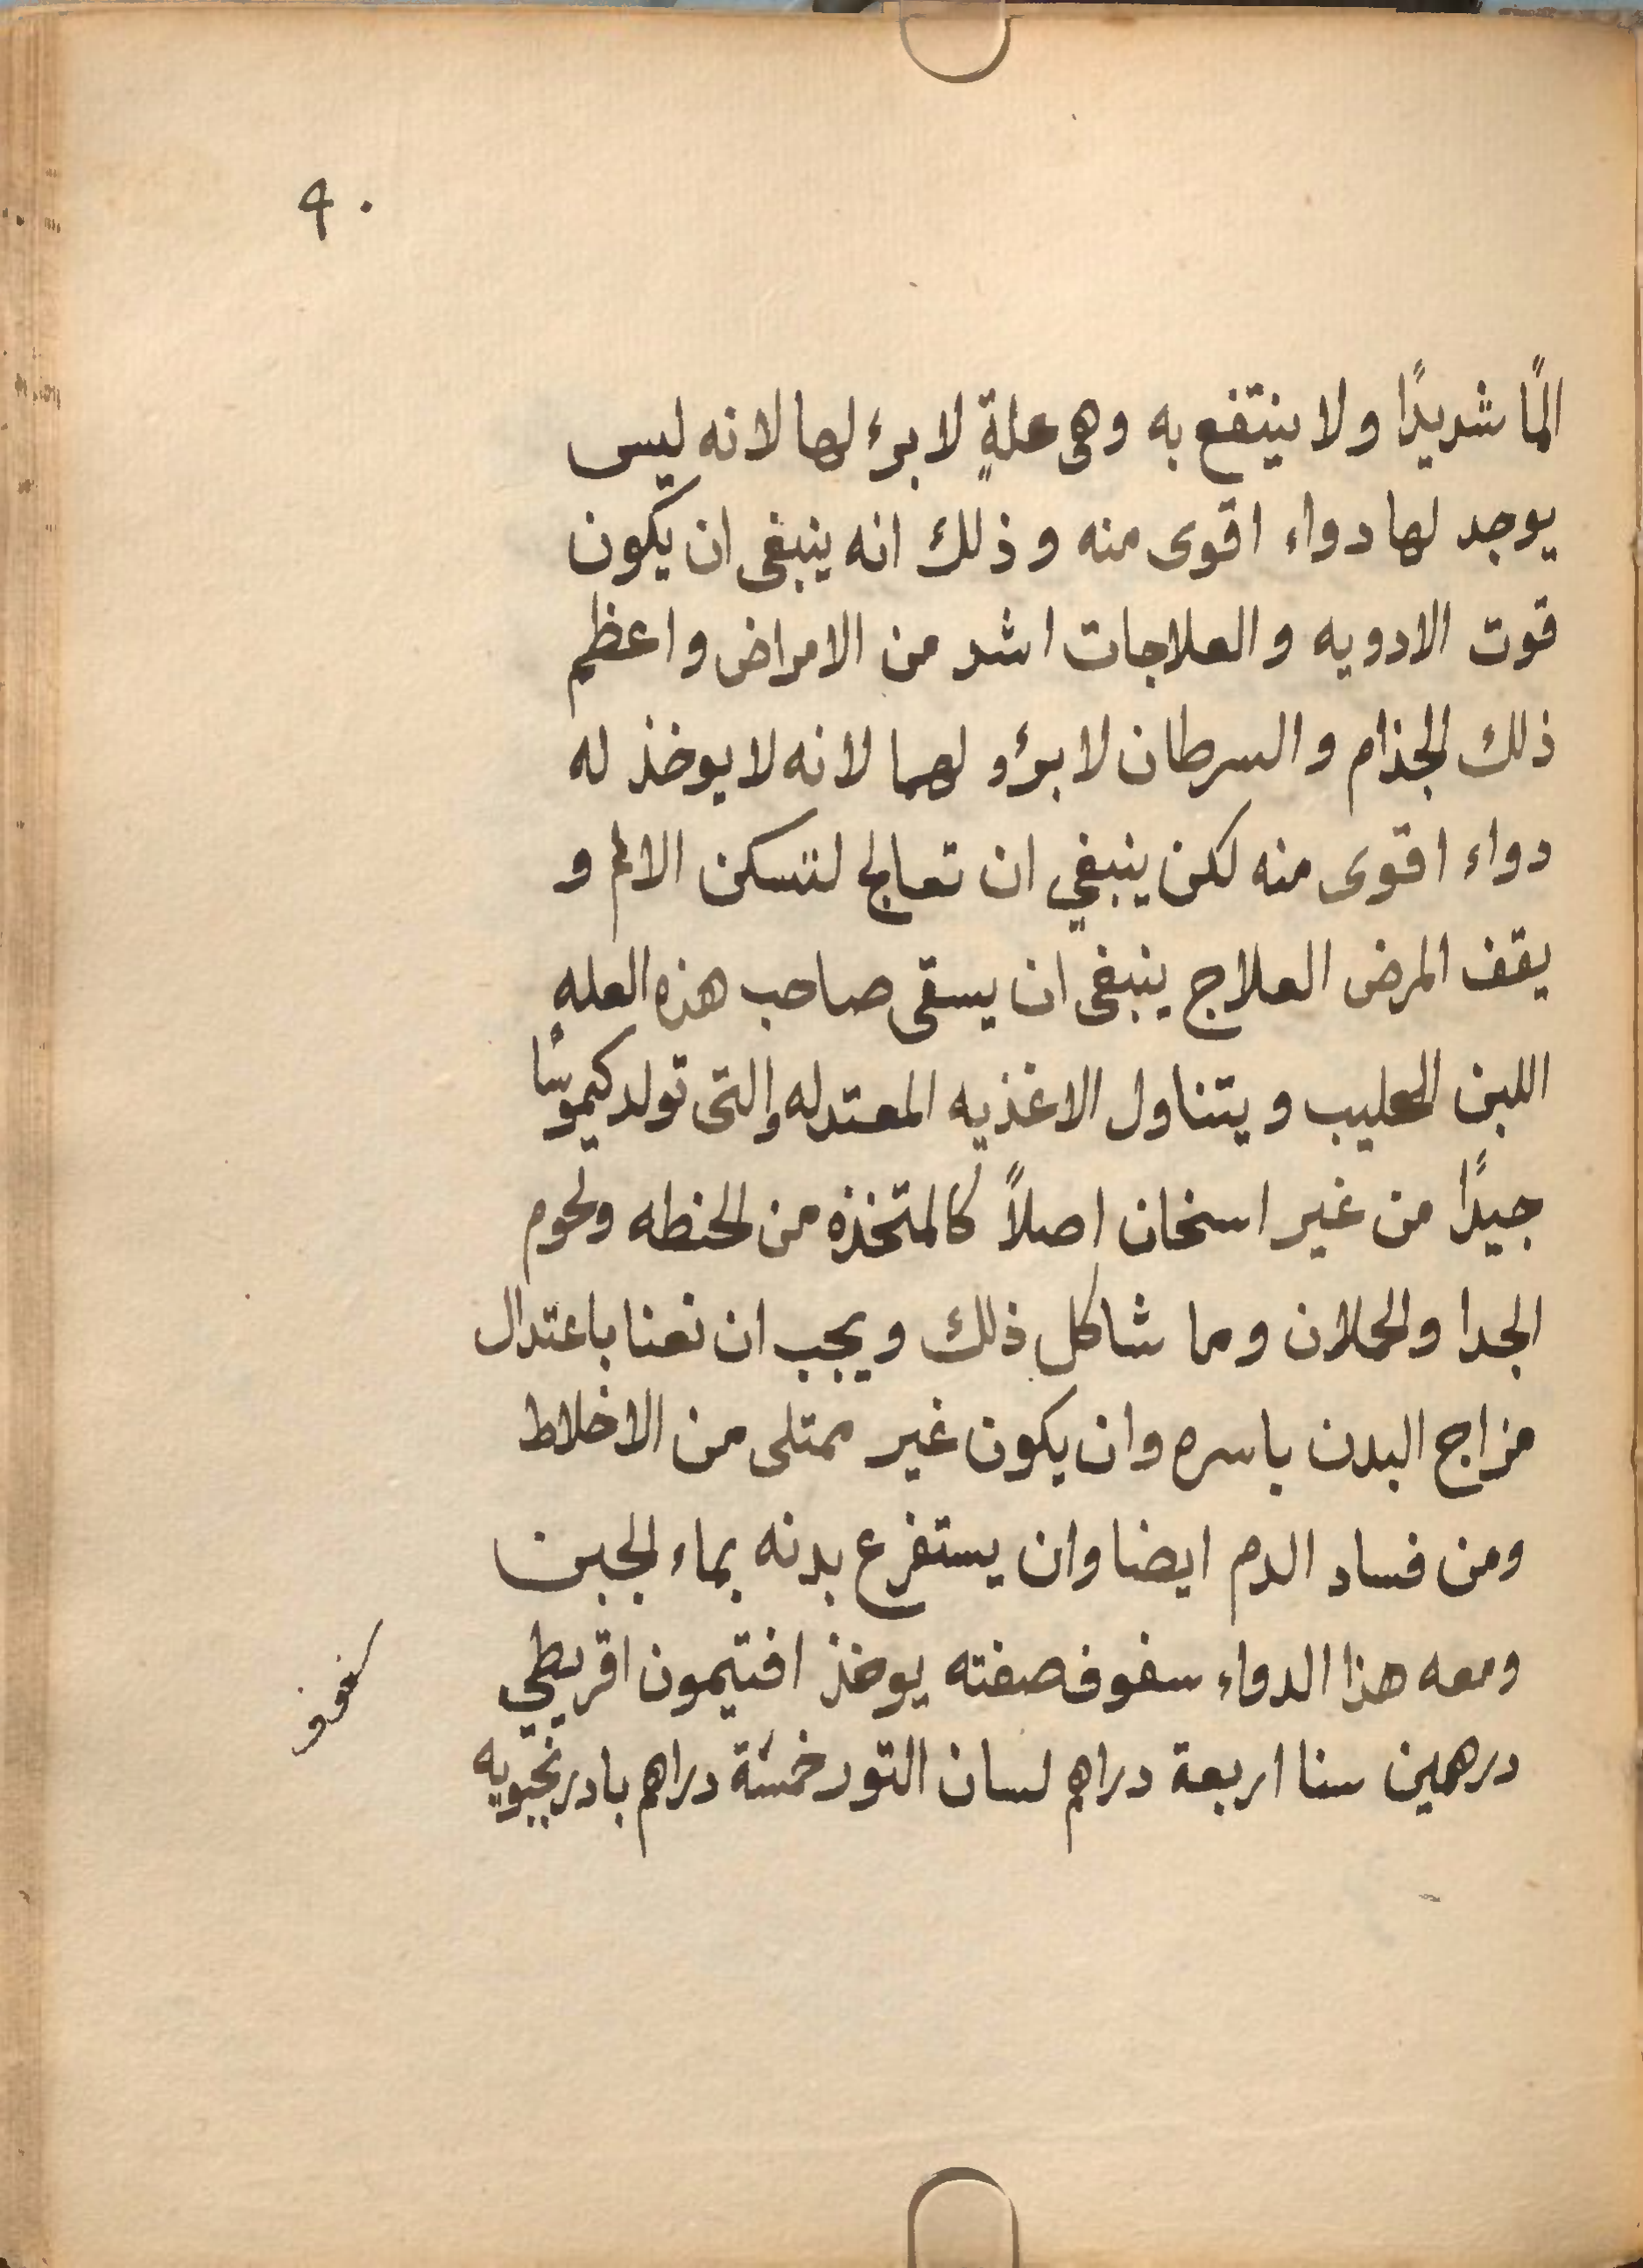 ٩٠
المًا شديدًا ولا ينتفع به وهى علةٍ لا برء لها لانه ليس
يوجد لها دواء اقوى منه وذلك انه ينبغى ان يكون
قوت الادويه والعلاجات اشد من الامراض واعظم
ذلك الجذام والسرطان لا برؤ لهما لانه لا يوخذ له
دواء اقوى منه لكن ينبغي ان تعالج لتسكن الالم و
يقف المرض العلاج ينبغى ان يسقى صاحب هذه العله
اللبن الحليب ويتناول الاغذيه المعتدله والتى تولد كيموسًا
جيدًا من غير اسخان اصلاً كالمتخذه من الحنطه ولحوم
الجدا والحملان وما شاكل ذلك ويجب ان نعنا باعتدال
مزاج البدن باسره وان يكون غير ممتلى من الاخلاط
ومن فساد الدم ايضا وان يستفرع بدنه بماء الجبن
ومعه هذا الدواء سفوف صفته يوخذ افتيمون اقريطي
درهمين سنا اربعة دراهم لسان التور خمسة دراهم بادرنجبويه